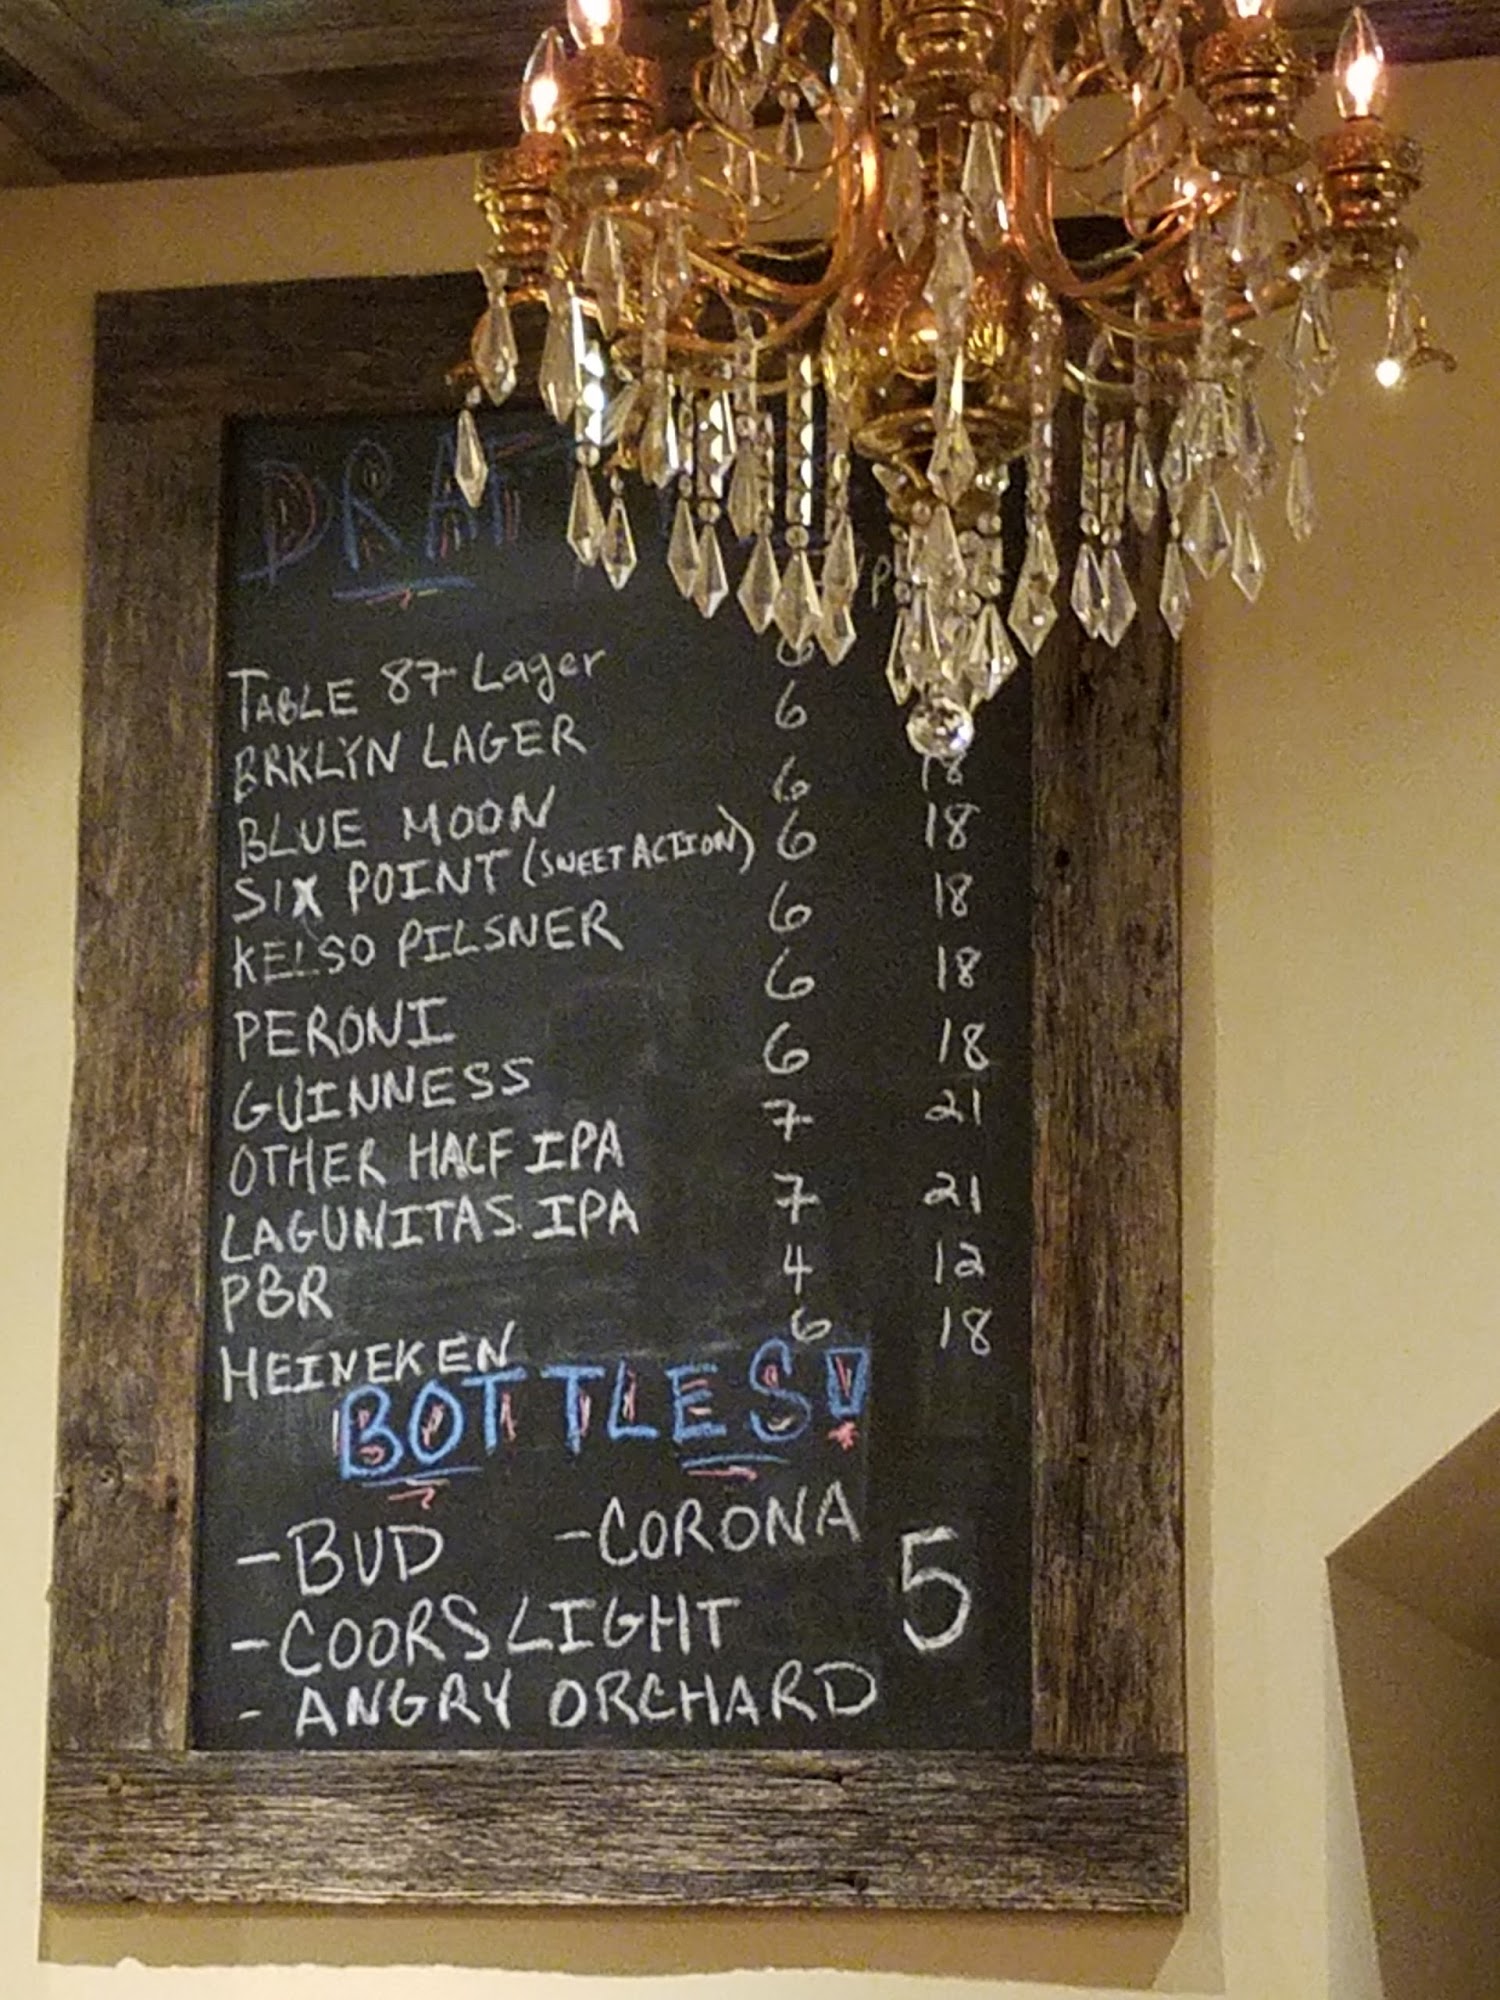 DRAF
Table 87 Lager 6
BRKLYN LAGER 6
BLUE MOON 6 18
SIX POINT (SWEET ACTION) 6 18
KELSO PILSNER 6 18
PERONI 6 18
GUINNESS 6 18
OTHER HALF IPA 7 21
LAGUNITAS IPA 7 21
PBR 4 12
HEINEKEN 6 18
BOTTLES!
-BUD -CORONA
-COORS LIGHT 5
-ANGRY ORCHARD